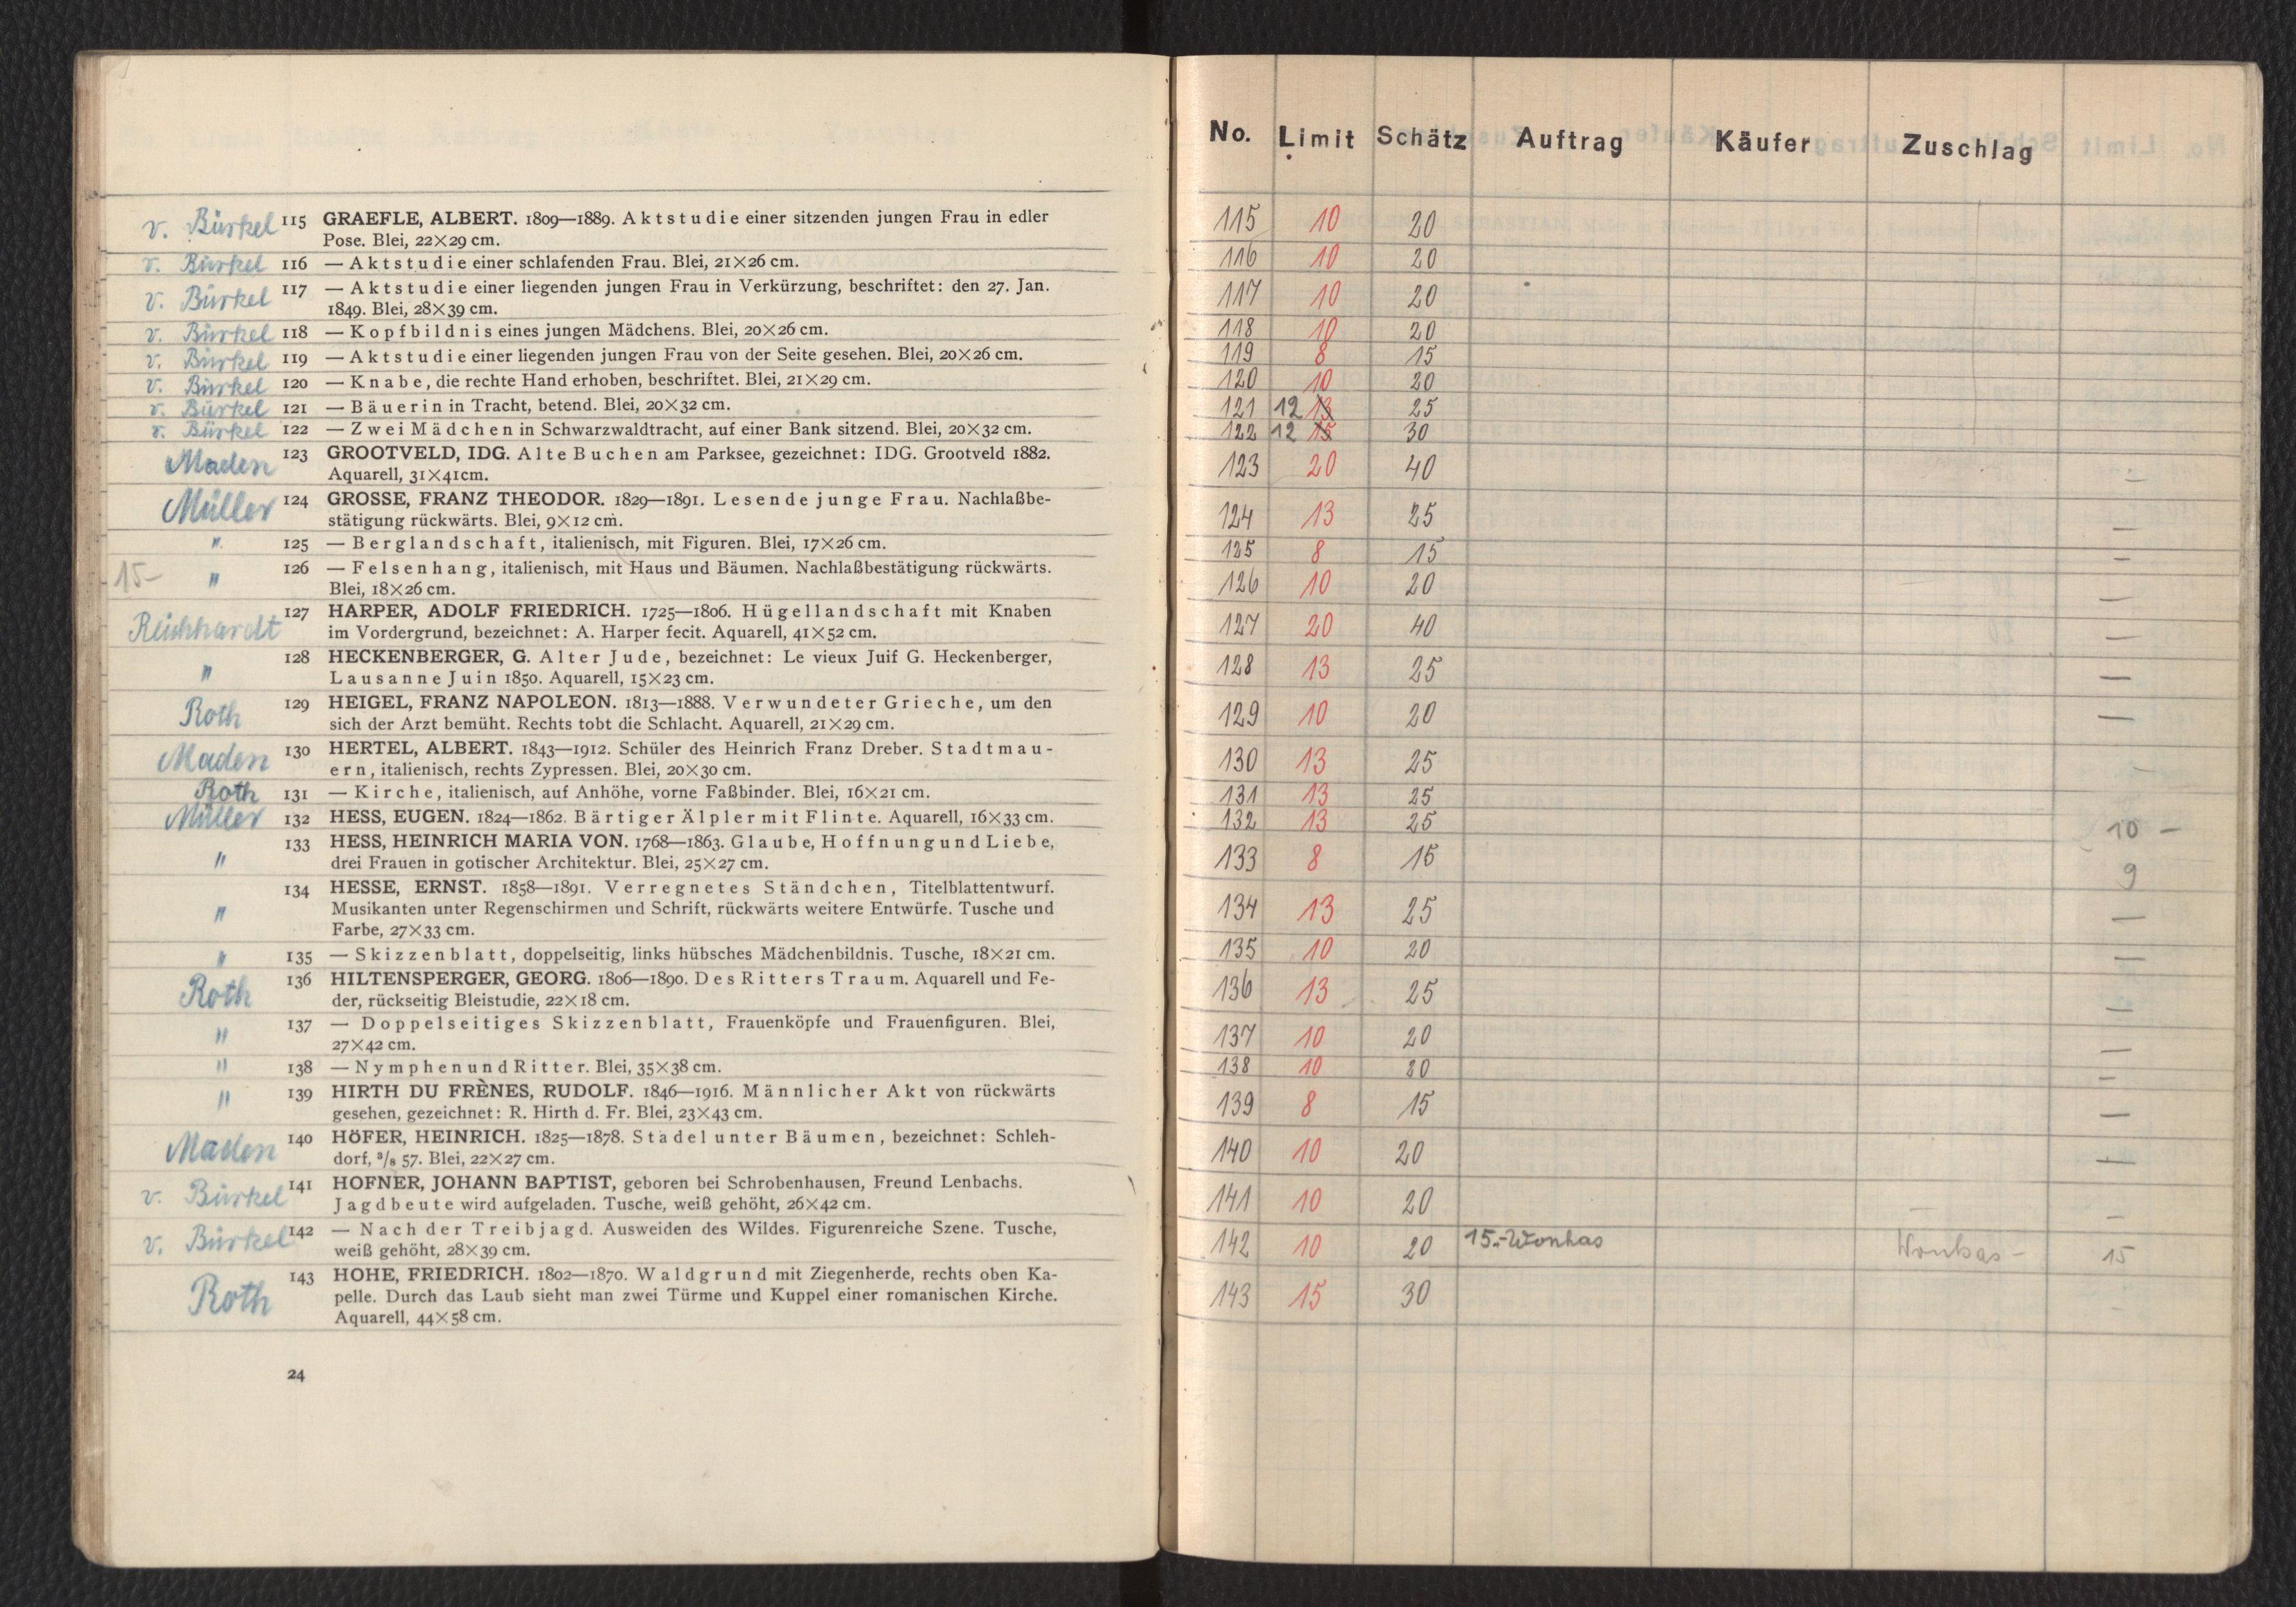 v. Bürkel 115 GRAEFLE, ALBERT. 1809—1889. Aktstudie einer sitzenden jungen Frau in edler
Pose. Blei, 22×29 cm.
v. Bürkel 116 — Aktstudie einer schlafenden Frau. Blei, 21×26 cm.
v. Bürkel 117 — Aktstudie einer liegenden jungen Frau in Verkürzung, beschriftet: den 27. Jan.
1849. Blei, 28×39 cm.
v. Bürkel 118 — Kopfbildnis eines jungen Mädchens. Blei, 20×26 cm.
v. Bürkel 119 — Aktstudie einer liegenden jungen Frau von der Seite gesehen. Blei, 20×26 cm.
v. Bürkel 120 — Knabe, die rechte Hand erhoben, beschriftet. Blei, 21×29 cm.
v. Bürkel 121 — Bäuerin in Tracht, betend. Blei, 20×32 cm.
v. Bürkel 122 — Zwei Mädchen in Schwarzwaldtracht, auf einer Bank sitzend. Blei, 20×32 cm.
Maden 123 GROOTVELD, IDG. Alte Buchen am Parksee, gezeichnet: IDG. Grootveld 1882.
Aquarell, 31×41cm.
Müller 124 GROSSE, FRANZ THEODOR. 1829—1891. Lesende junge Frau. Nachlaßbe-
stätigung rückwärts. Blei, 9×12 cm.
" 125 — Berglandschaft, italienisch, mit Figuren. Blei, 17×26 cm.
15- " 126 — Felsenhang, italienisch, mit Haus und Bäumen. Nachlaßbestätigung rückwärts.
Blei, 18×26 cm.
Reichhardt 127 HARPER, ADOLF FRIEDRICH. 1725—1806. Hügellandschaft mit Knaben
im Vordergrund, bezeichnet: A. Harper fecit. Aquarell, 41×52 cm.
" 128 HECKENBERGER, G. Alter Jude, bezeichnet: Le vieux Juif G. Heckenberger,
Lausanne Juin 1850. Aquarell, 15×23 cm.
Roth 129 HEIGEL, FRANZ NAPOLEON. 1813—1888. Verwundeter Grieche, um den
sich der Arzt bemüht. Rechts tobt die Schlacht. Aquarell, 21×29 cm.
Maden 130 HERTEL, ALBERT. 1843—1912. Schüler des Heinrich Franz Dreber. Stadtmau-
ern, italienisch, rechts Zypressen. Blei, 20×30 cm.
Roth 131 — Kirche, italienisch, auf Anhöhe, vorne Faßbinder. Blei, 16×21 cm.
Müller 132 HESS, EUGEN. 1824—1862. Bärtiger Älpler mit Flinte. Aquarell, 16×33 cm.
" 133 HESS, HEINRICH MARIA VON. 1768—1863. Glaube, Hoffnung und Liebe,
drei Frauen in gotischer Architektur. Blei, 25×27 cm.
" 134 HESSE, ERNST. 1858—1891. Verregnetes Ständchen, Titelblattentwurf.
Musikanten unter Regenschirmen und Schrift, rückwärts weitere Entwürfe. Tusche und
Farbe, 27×33 cm.
" 135 — Skizzenblatt, doppelseitig, links hübsches Mädchenbildnis. Tusche, 18×21 cm.
Roth 136 HILTENSPERGER, GEORG. 1806—1890. Des Ritters Traum. Aquarell und Fe-
der, rückseitig Bleistudie, 22×18 cm.
" 137 — Doppelseitiges Skizzenblatt, Frauenköpfe und Frauenfiguren. Blei,
27×42 cm.
" 138 — Nymphen und Ritter. Blei, 35×38 cm.
" 139 HIRTH DU FRÈNES, RUDOLF. 1846—1916. Männlicher Akt von rückwärts
gesehen, gezeichnet: R. Hirth d. Fr. Blei, 23×43 cm.
Maden 140 HÖFER, HEINRICH. 1825—1878. Stadel unter Bäumen, bezeichnet: Schleh-
dorf, 3/8 57. Blei, 22×27 cm.
v. Bürkel 141 HOFNER, JOHANN BAPTIST, geboren bei Schrobenhausen, Freund Lenbachs.
Jagdbeute wird aufgeladen. Tusche, weiß gehöht, 26×42 cm.
v. Bürkel 142 — Nach der Treibjagd. Ausweiden des Wildes. Figurenreiche Szene. Tusche,
weiß gehöht, 28×39 cm.
Roth 143 HOHE, FRIEDRICH. 1802—1870. Waldgrund mit Ziegenherde, rechts oben Ka-
pelle. Durch das Laub sieht man zwei Türme und Kuppel einer romanischen Kirche.
Aquarell, 44×58 cm.
24
No. Limit Schätz Auftrag Käufer Zuschlag
115 10 20
116 10 20
117 10 20
118 10 20
119 8 15
120 10 20
121 12 13 25
122 12 15 30
123 20 40 —
124 13 25 —
125 8 15 —
126 10 20 —
127 20 40 —
128 13 25 —
129 10 20 —
130 13 25 -
131 13 25
132 13 25 10 —
133 8 15 9
134 13 25 —
135 10 20 —
136 13 25 —
137 10 20 —
138 10 20 —
139 8 15 —
140 10 20 —
141 10 20 —
142 10 20 15.- Wonhas Wonhas - 15
143 15 30 -